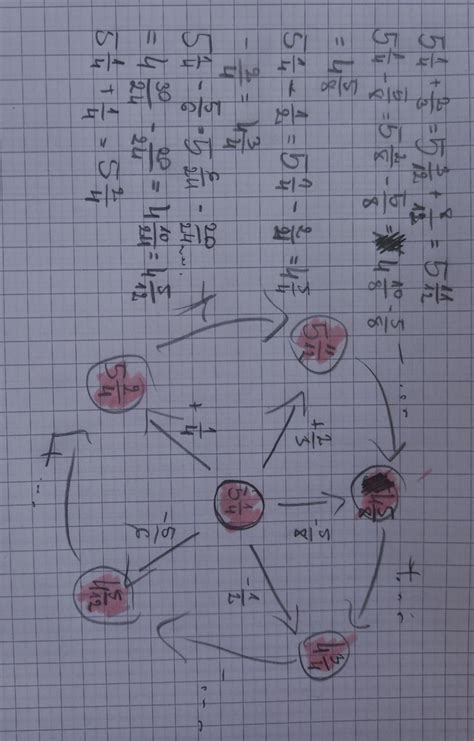 5 1/4 + 2/3 = 5 3/12 + 8/12 = 5 11/12
5 1/4 - 5/8 = 5 2/8 - 5/8 = 4 10/8 - 5/8
= 4 5/8
5 1/4 - 1/2 = 5 1/4 - 2/4 = 4 5/4
- 2/4 = 4 3/4
5 1/4 - 5/6 = 5 6/24 - 20/24 ...
= 4 30/24 - 20/24 = 4 10/24 = 4 5/12
5 1/4 + 1/4 = 5 2/4
- ...
5 11/12
4 5/8
+
+ 2/3
- 5/8
+ ...
5 2/4
+ 1/4
5 1/4
- 1/2
4 3/4
- 5/6
+ ...
4 5/12
- ...